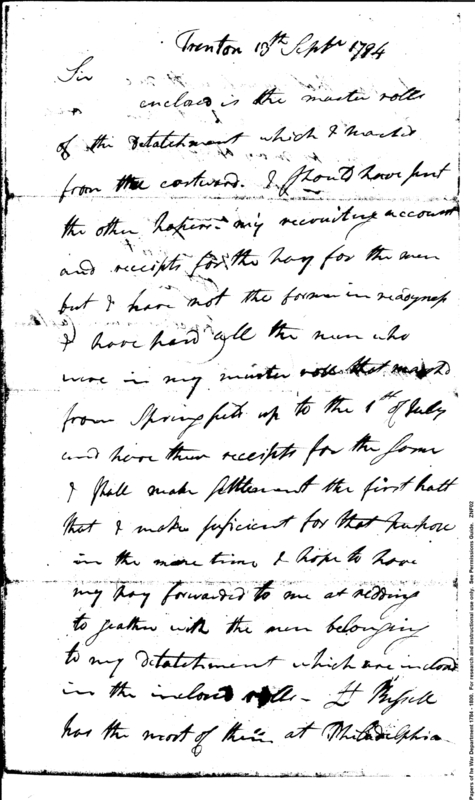 Trenton 13th Septr 1794
Sir
enclosed is the muster rolls
of the Detatchment which I march'd
from the eastward. I should have sent
the other papers my recruiting account
and receipts for the pay for the men
but I have not the former in readyness
I have paid all the men who
were in my muster rolls that march'd
from Springfield up to the 1st of July
and have their receipts for the same
I shall make settlement the first halt
that I make suficient for that purpose
in the mene time I hope to have
my pay forwarded to me at redding
to geather with the men belonging
to my detatchment which are inclosed
in the inclosed rolls - Lt Bissell
has the most of them at Philadelphia
Papers of the War Department 1784 - 1800. For research and instructional use only. See Permissions Guide. ZNP02